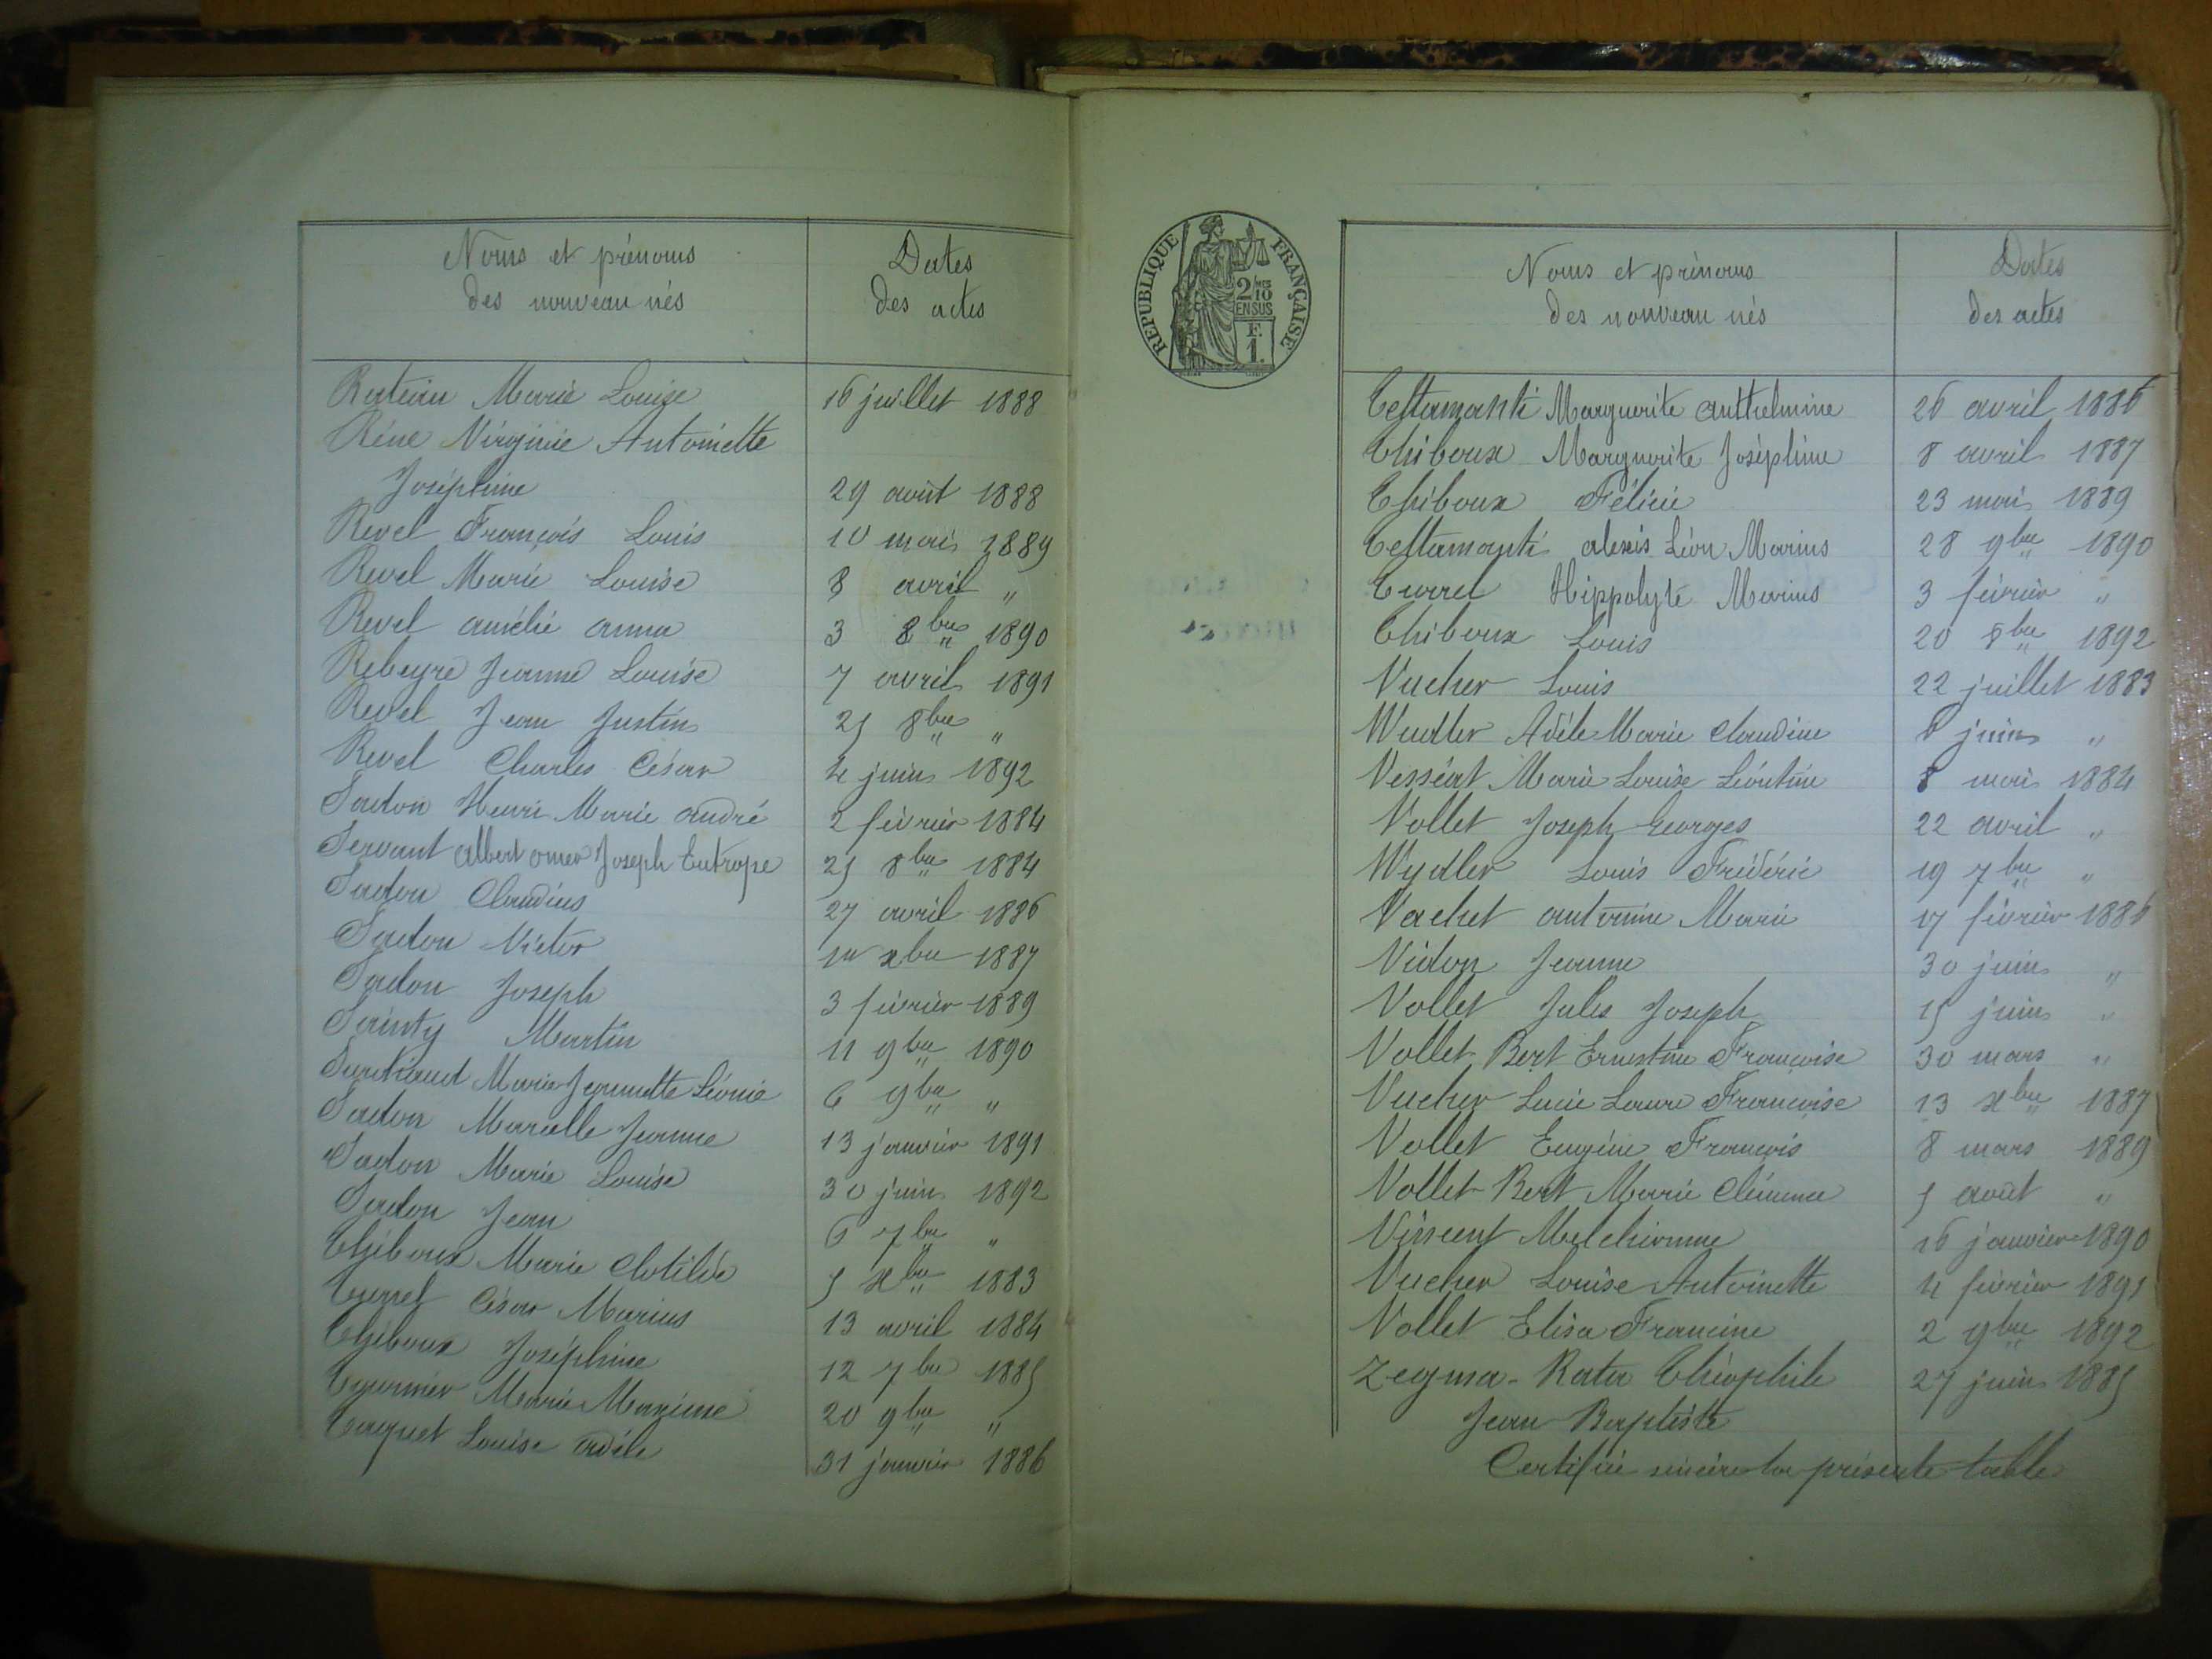 Noms et prénoms
des nouveau nés
Dates
des actes
Rateau Marie Louise 16 juillet 1888
Réne Virginie Antoinette
Joséphine 29 août 1888
Revel François Louis 10 mai 1889
Revel Marie Louise 8 avril "
Revel amélie anna 3 8bre 1890
Rebeyre Jeanne Louise 7 avril 1891
Revel Jean Justin 25 8bre "
Revel Charles César 4 juin 1892
Sadon Henri Marie andré 2 février 1884
Servant albert omer Joseph Eutrope 25 8bre 1884
Sadon Claudius 27 avril 1886
Sadon Victor xbre 1887
Sadon Joseph 3 février 1889
Sainty Martin 11 9bre 1890
Marie Jeannette Léonie 6 9bre "
Sadon Marcelle Jeanne 13 janvier 1891
Sadon Marie Louise 30 juin 1892
Sadon Jean 6 7bre "
Thiboux Marie Clotilde 5 xbre 1883
Turrel César Marius 13 avril 1884
Thiboux Joséphine 12 7bre 1885
Marie Maxime 20 9bre "
Taquet Louise adèle 31 janvier 1886
REPUBLIQUE FRANÇAISE
2/10
EN SUS
F.
1.
Noms et prénoms
des nouveau nés
Dates
des actes
Testamanti Marguerite anthelmine 26 avril 1886
Thiboux Marguerite Joséphine 8 avril 1887
Thiboux Félicie 23 mai 1889
Testamanti alexis Léon Marius 28 9bre 1890
Turrel Hippolyte Marius 3 février "
Thiboux Louis 20 8bre 1892
Vucher Louis 22 juillet 1883
Wudler Adèle Marie Claudine 6 juin "
Vesséat Marie Louise Léontine 8 mai 1884
Vollet Joseph Georges 22 avril "
Wydler Louis Frédéric 19 7bre "
Vachet antonine Marie 17 février 1886
Vidon Jeanne 30 juin "
Vollet Jules Joseph 15 juin "
Vollet Bert Ernestine Françoise 30 mars "
Vucher Lucie Laure Françoise 13 xbre 1887
Vollet Eugène François 8 mars 1889
Vollet Bert Marie Clémence 5 août "
Vincent Melchionne 16 janvier 1890
Vucher Louise Antoinette 4 février 1891
Vollet Elisa Francine 2 9bre 1892
Zegma-Rata Théophile 27 juin 1885
Jean Baptiste
Certifiée sincère la présente table